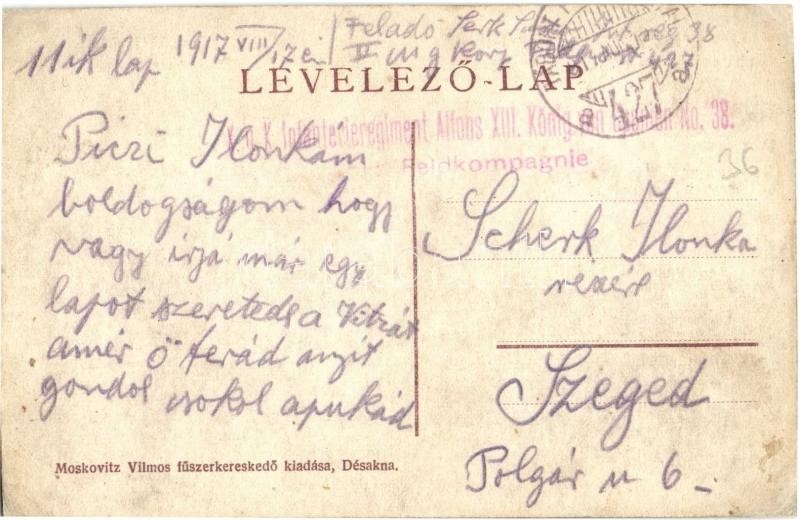 11ik lap 1917 VIII/17én
Feladó Serk
II
LEVELEZŐ-LAP
427
K.u.K. Infanterieregiment Alfons XIII. König von Spanien No. 38.
Feldkompagnie
36
Piczi Ilonkám
boldogságom hogy
vagy irjá már egy
lapot szereted a
amér ő terád anyit
gondol csokol apukád
Scherk Ilonka
részére
Szeged
Polgár u 6
Moskovitz Vilmos fűszerkereskedő kiadása, Désakna.